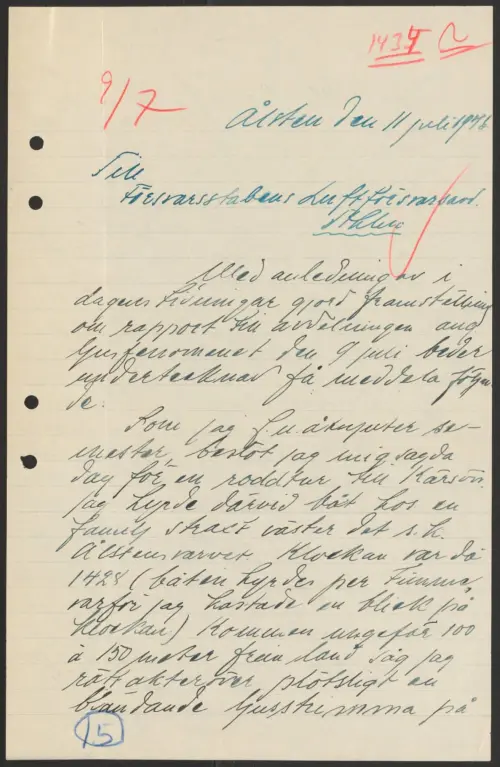 1434
9/7
Ålsten den 11 juli 1946
Till
Försvarsstabens Luftförsvarsavd.
Sthlm
Med anledning av i
dagens tidningar gjord framställning
om rapport till avdelningen ang
ljusfenomenet den 9 juli beder
undertecknad få meddela följan
de.
Som jag f.n. åtnjuter se-
mester, beslöt jag mig sagda
dag för en roddtur till Kärsön.
Jag hyrde därvid båt hos en
familj strax väster det s.k.
Ålstensvarvet. Klockan var då
1428 (båten hyrdes per timma,
varför jag kastade en blick på
klockan) Kommen ungefär 100
à 150 meter från land såg jag
rätt akteröver plötsligt en
bländande ljusstrimma på
15